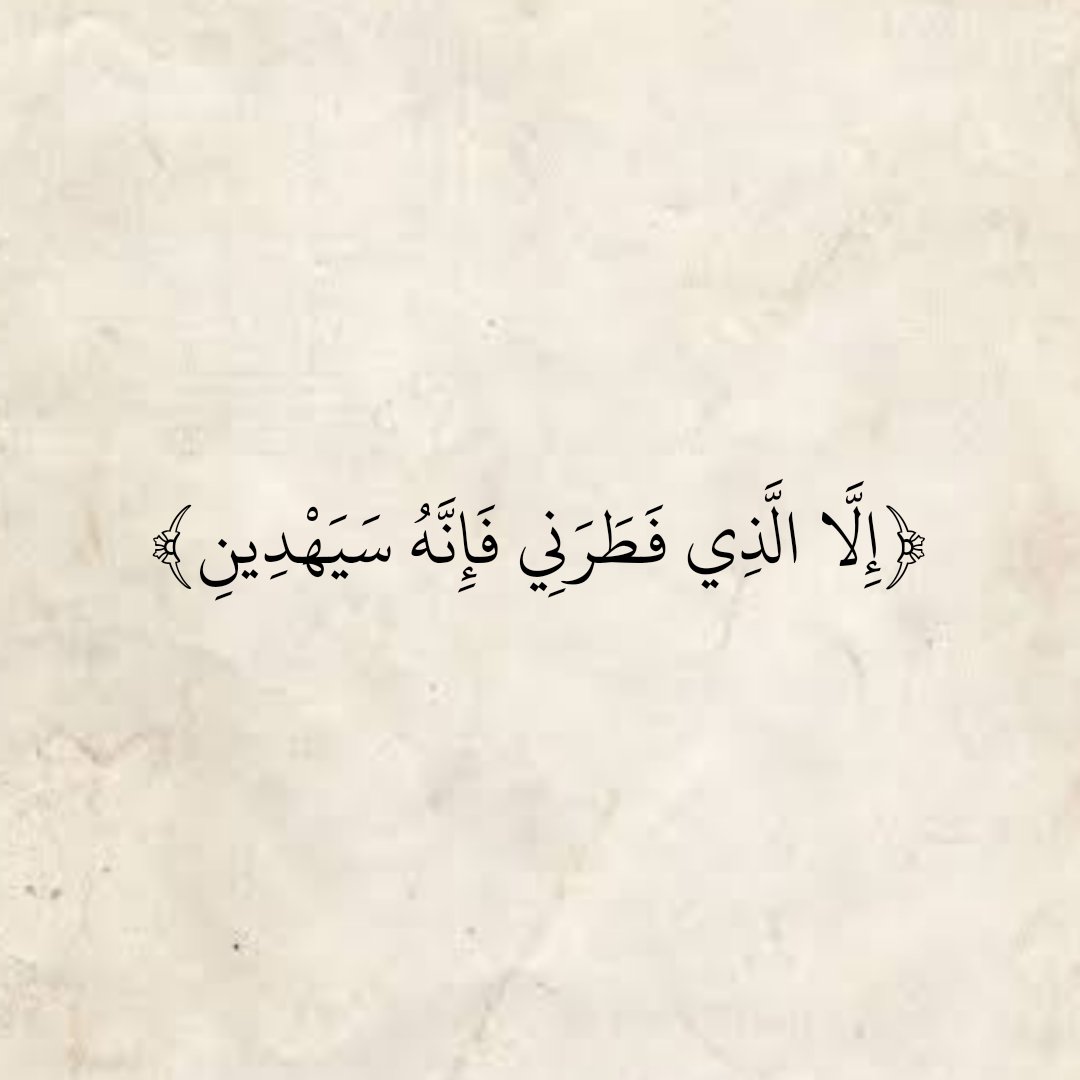 ﴿إِلَّا الَّذِي فَطَرَنِي فَإِنَّهُ سَيَهْدِينِ﴾